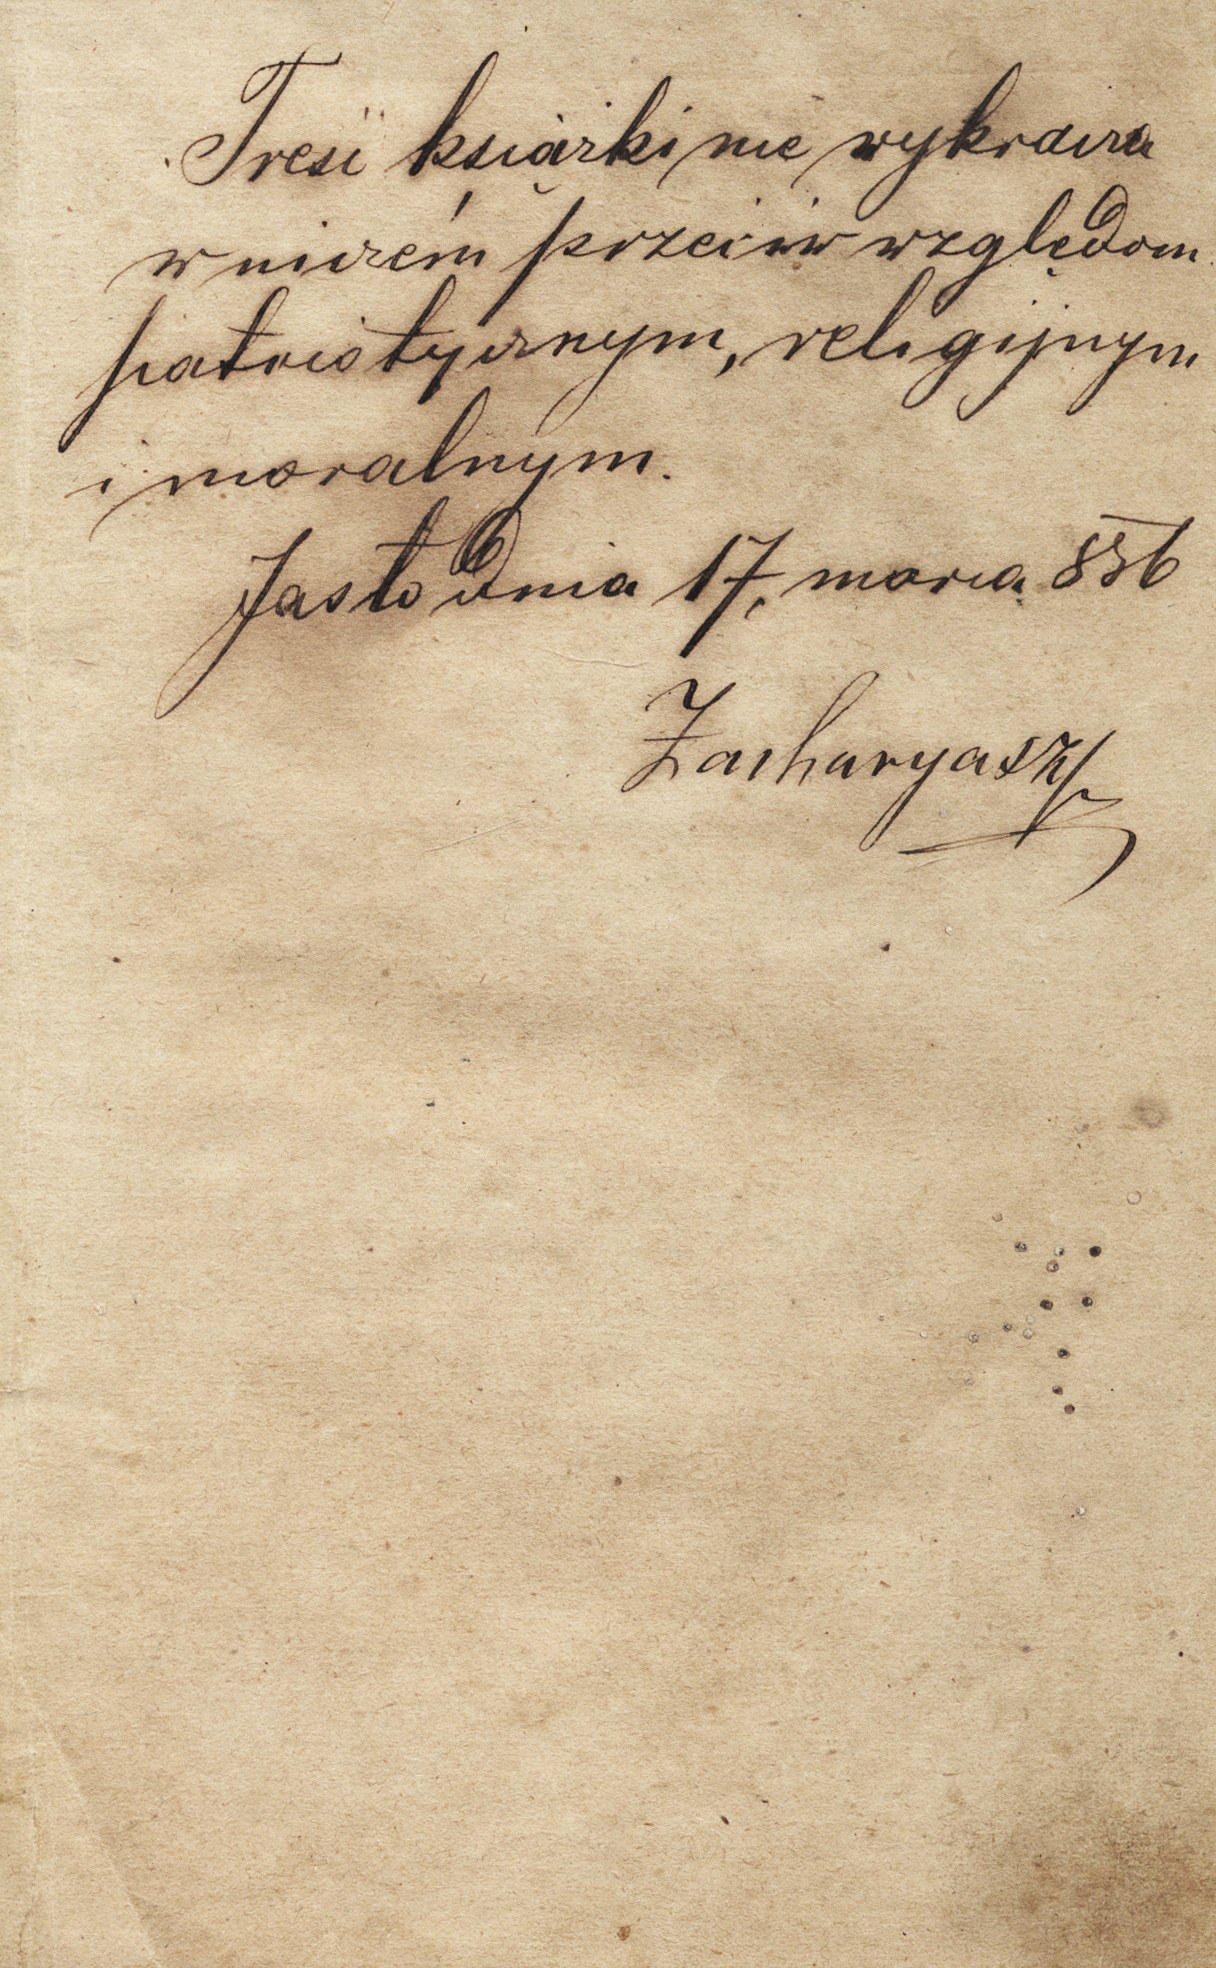 Treść książki nie wykracza
w niczém przeciw względom
patriotycznym, religijnym
i moralnym.
Jasło dnia 17, marca 886
Zacharyasz